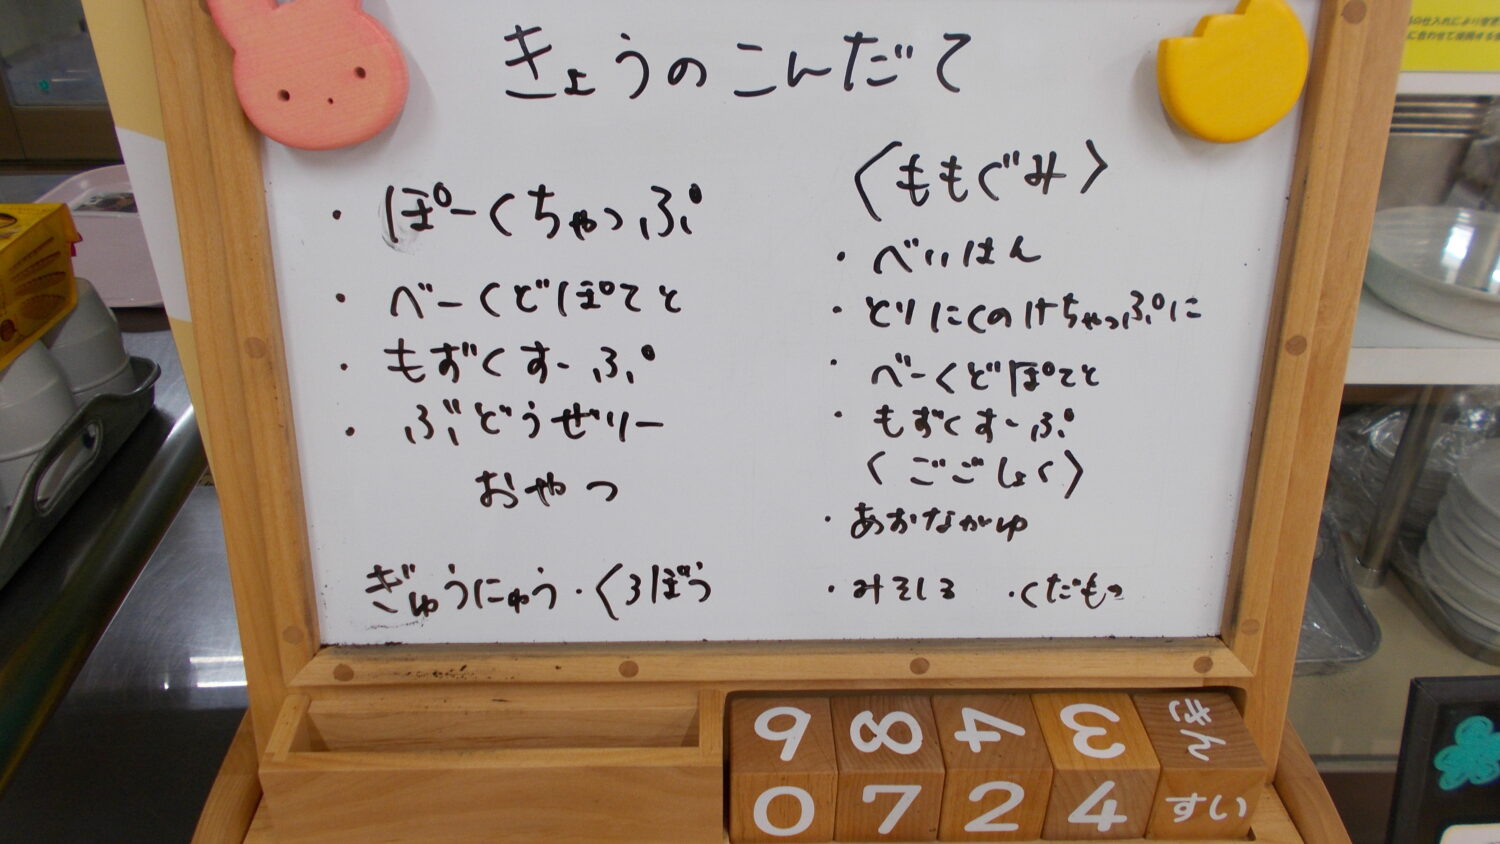 きょうのこんだて
・ぽーくちゃっぷ
・べーくどぽてと
・もずくすーぷ
・ぶどうぜりー
おやつ
ぎゅうにゅう・くろぼう
〈ももぐみ〉
・べいはん
・とりにくのけちゃっぷに
・べーくどぽてと
・もずくすーぷ
〈ごごしょく〉
・あおながゆ
・みそしる ・くだもつ
9 8 4 3 きん
0 7 2 4 すい